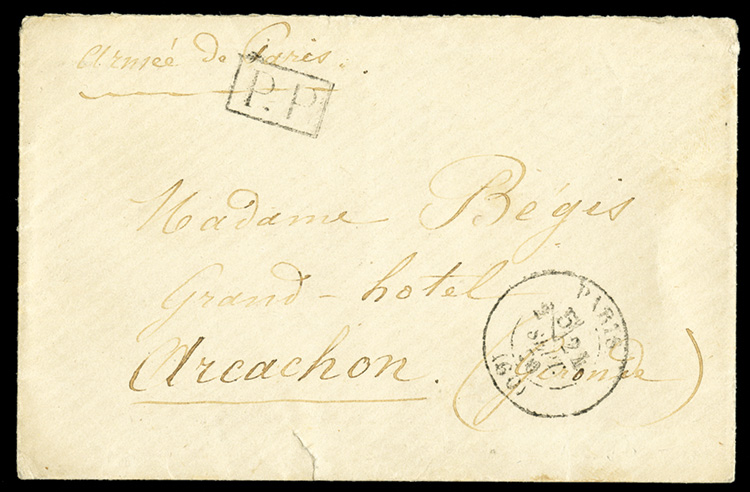 Armée de Paris.
P.P
Madame Bégis
Grand-hotel
Arcachon. (Gironde)
PARIS
(60)